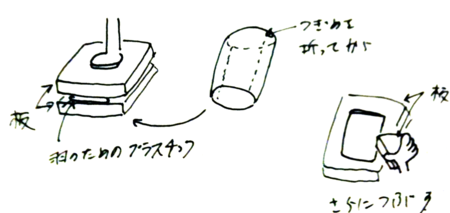 つぎめを
折ってから
板
羽のためのプラスチック
板
さらにつぶす